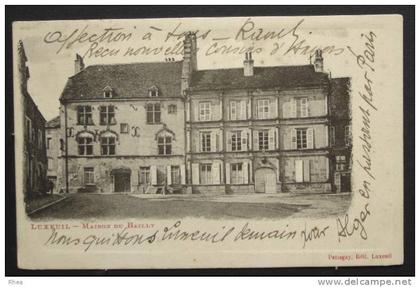 Affection à tous - Raoul
Reçu nouvelle cousins d'Hanoi
LUXEUIL — MAISON DU BAILLY
Nous quittons Luxeuil demain pour
Alger en passant par Paris
Pattegay, Edit. Luxeuil
Rhea
Visit www.delcampe.net